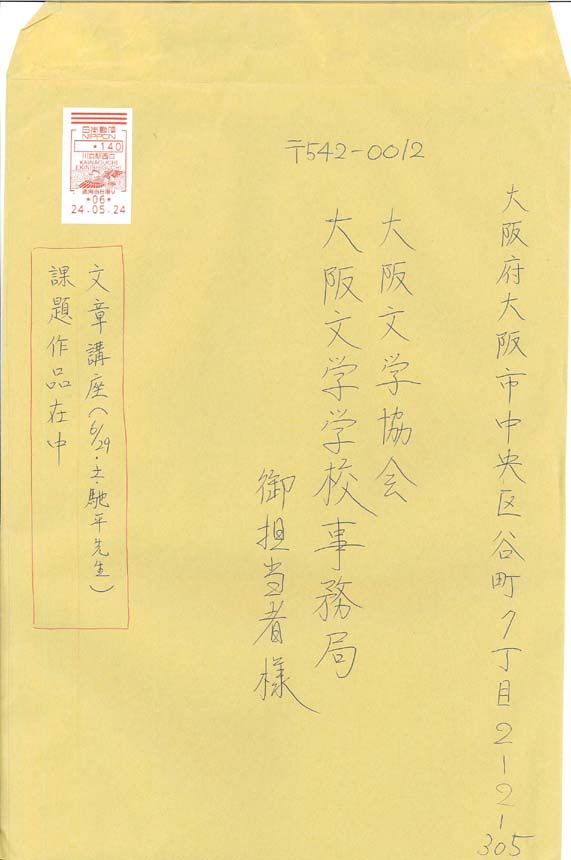 〒542-0012
大阪府大阪市中央区谷町7丁目2-2-305
大阪文学協会
大阪文学学校事務局
御担当者様
日本郵便
NIPPON
**140
川口駅西口
KAWAGUCHI
EKINISHIGUCHI
*06*
24.05.24
文章講座(6/29・土・馳平先生)
課題作品在中